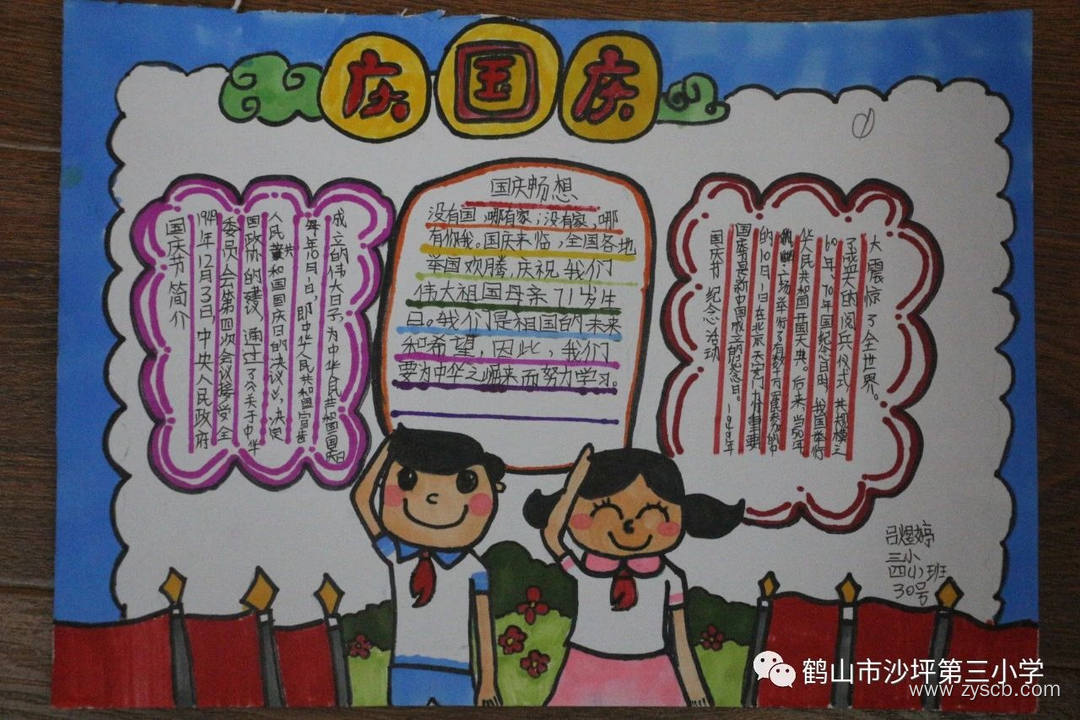 庆国庆
国庆节简介
1949年12月3日,中央人民政府
委员会第四次会议接受全
国政协的建议,通过了《关于中华
人民共和国国庆日的决议》,决定
每年10月1日,即中华人民共和国宣告
成立的伟大日子,为中华人民共和国国
国庆畅想
没有国,哪有家;没有家,哪
有你我。国庆来临,全国各地
举国欢腾,庆祝我们
伟大祖国母亲71岁生
日。我们是祖国的未来
和希望,因此,我们
要为中华之崛来而努力学习。
国庆节纪念活动
国庆是新中国成立的纪念日。1949年
的10月1日在北京天安门
广场举行了有数十万军民参加的中
华人民共和国开国大典。后来,当50年
60年、70年国纪念日时,我国举行
了盛大的阅兵仪式,其规模之
大震惊了全世界。
吕煜婷
三小
四(1)班
30号
鹤山市沙坪第三小学
www.zyscb.com